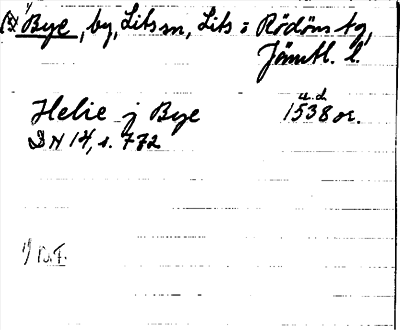 1) Bye, by, Lits sn, Lits o Rödöns tg,
Jämtl. l.
Helie j Bye u.d. 1538 or.
DN 14, s. 772
1) B.F.